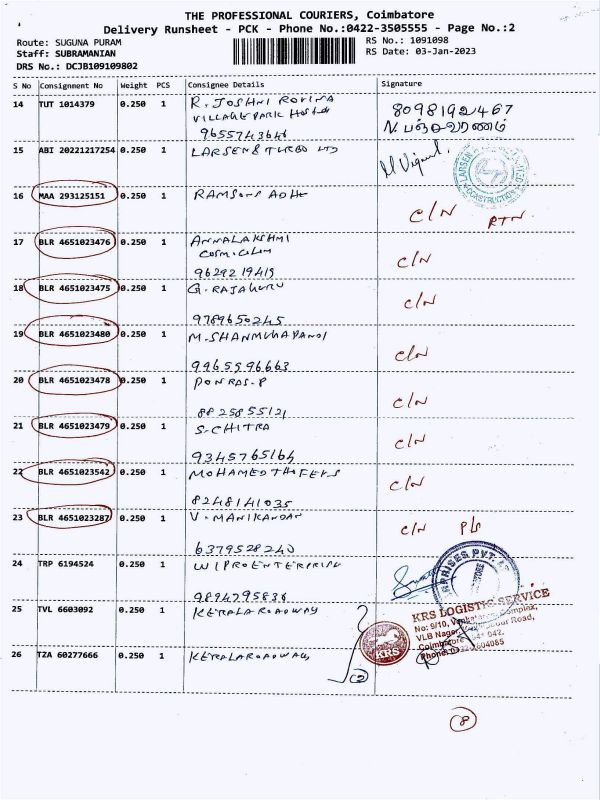 THE PROFESSIONAL COURIERS, Coimbatore
Delivery Runsheet - PCK - Phone No.:0422-3505555 - Page No.:2
Route: SUGUNA PURAM
RS No.: 1091098
Staff: SUBRAMANIAN
RS Date: 03-Jan-2023
DRS No.: DCJB109109802
S No Consignment No Weight PCS Consignee Details Signature
14 TUT 1014379 0.250 1 R. JOSHNI ROVINA
VILLAGE PARK
9655743646
8098192467
15 ABI 20221217254 0.250 1 LARSEN & TURBO LTD
16 MAA 293125151 0.250 1 RAMSONS C/N RTN
17 BLR 4651023476 0.250 1 ANNALAKSHMI
9629219419 C/N
18 BLR 4651023475 0.250 1 G. RAJAGURU
9789650245 C/N
19 BLR 4651023480 0.250 1 M. SHANMUGAPANDI
9965596663 C/N
20 BLR 4651023478 0.250 1 PONRAS.P
8825855121 C/N
21 BLR 4651023479 0.250 1 S. CHITRA
9345765164 C/N
22 BLR 4651023542 0.250 1 MOHAMED
8248141035 C/N
23 BLR 4651023287 0.250 1 V. MANIKANDAN
6379528240 C/N
24 TRP 6194524 0.250 1 WIPRO ENTERPRISE
9894795836
25 TVL 6603092 0.250 1 KERALA ROADWAY
KRS LOGISTIC SERVICE
No: 9/10,
Complex,
VLB Nagar,
Road,
Coimbatore
KRS
26 TZA 60277666 0.250 1 KERALA ROADWAYS
2
8